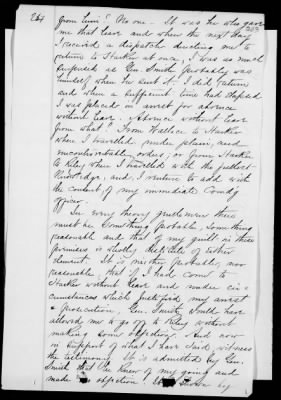 264
from him? No one - It was he who gave
me that leave and when the next day
I received a dispatch directing me to
return to Harker at once, I was as much
surprised as Gen. Smith probably was
himself when he sent it. I did return
and when a sufficient time had elapsed
I was placed in arrest for absence
without leave. Absence without leave
from what? From Wallace to Harker
when I travelled under plain, and
incontrovertible orders, or from Harker
to Riley when I travelled with the fullest
knowledge, and, I venture to add with
the consent of my immediate Comdg
officer.
In every theory gentlemen there
must be something probable, something
reasonable and that of my guilt in these
premises is wholly destitute of either
element. It is neither probable, nor
reasonable, that if I had come to
Harker without leave and under cir-
cumstances which justified my arrest
& prosecution, Gen. Smith would have
allowed me to go off to Riley without
making some objection. And now
in support of what I have said, witness
the testimony. It is admitted by Gen.
Smith that he knew of my going and
made no objection. shown by